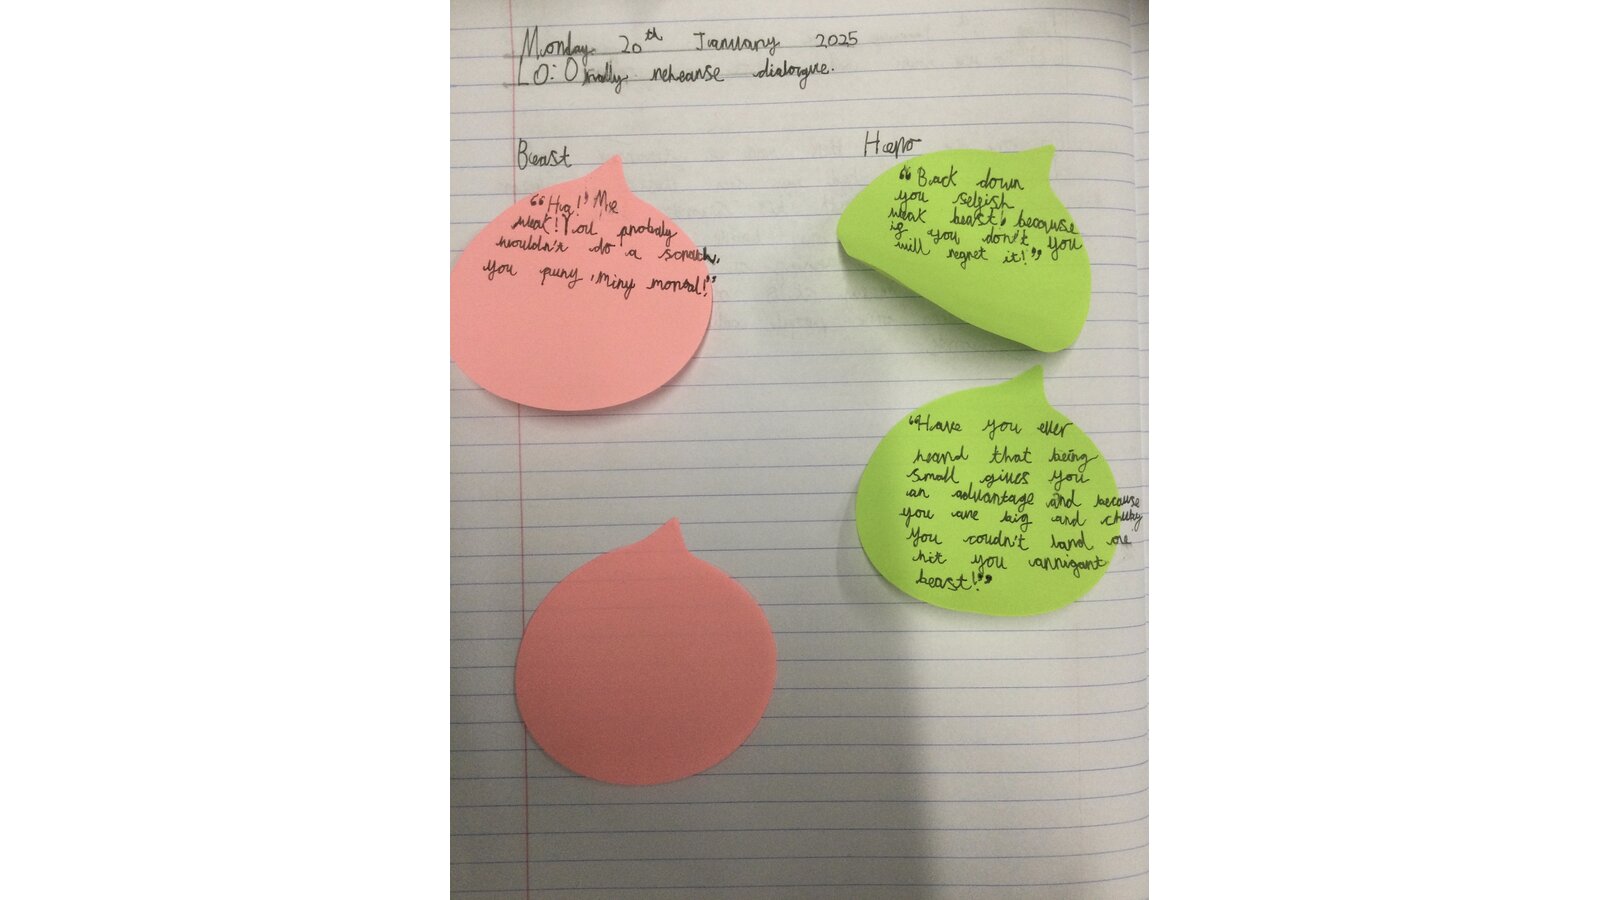 Monday 20th January 2025
LO: Orally rehearse dialogue.
Beast
"Ha!" Me
weak! You probaly
wouldn't do a scratch,
you puny, miny mortal!"
Hero
"Back down
you selfish
weak beast, because
if you don't you
will regret it!"
"Have you ever
heard that being
small gives you
an advantage and because
you are big and chuby
you coudn't land one
hit you arrigant
beast!"